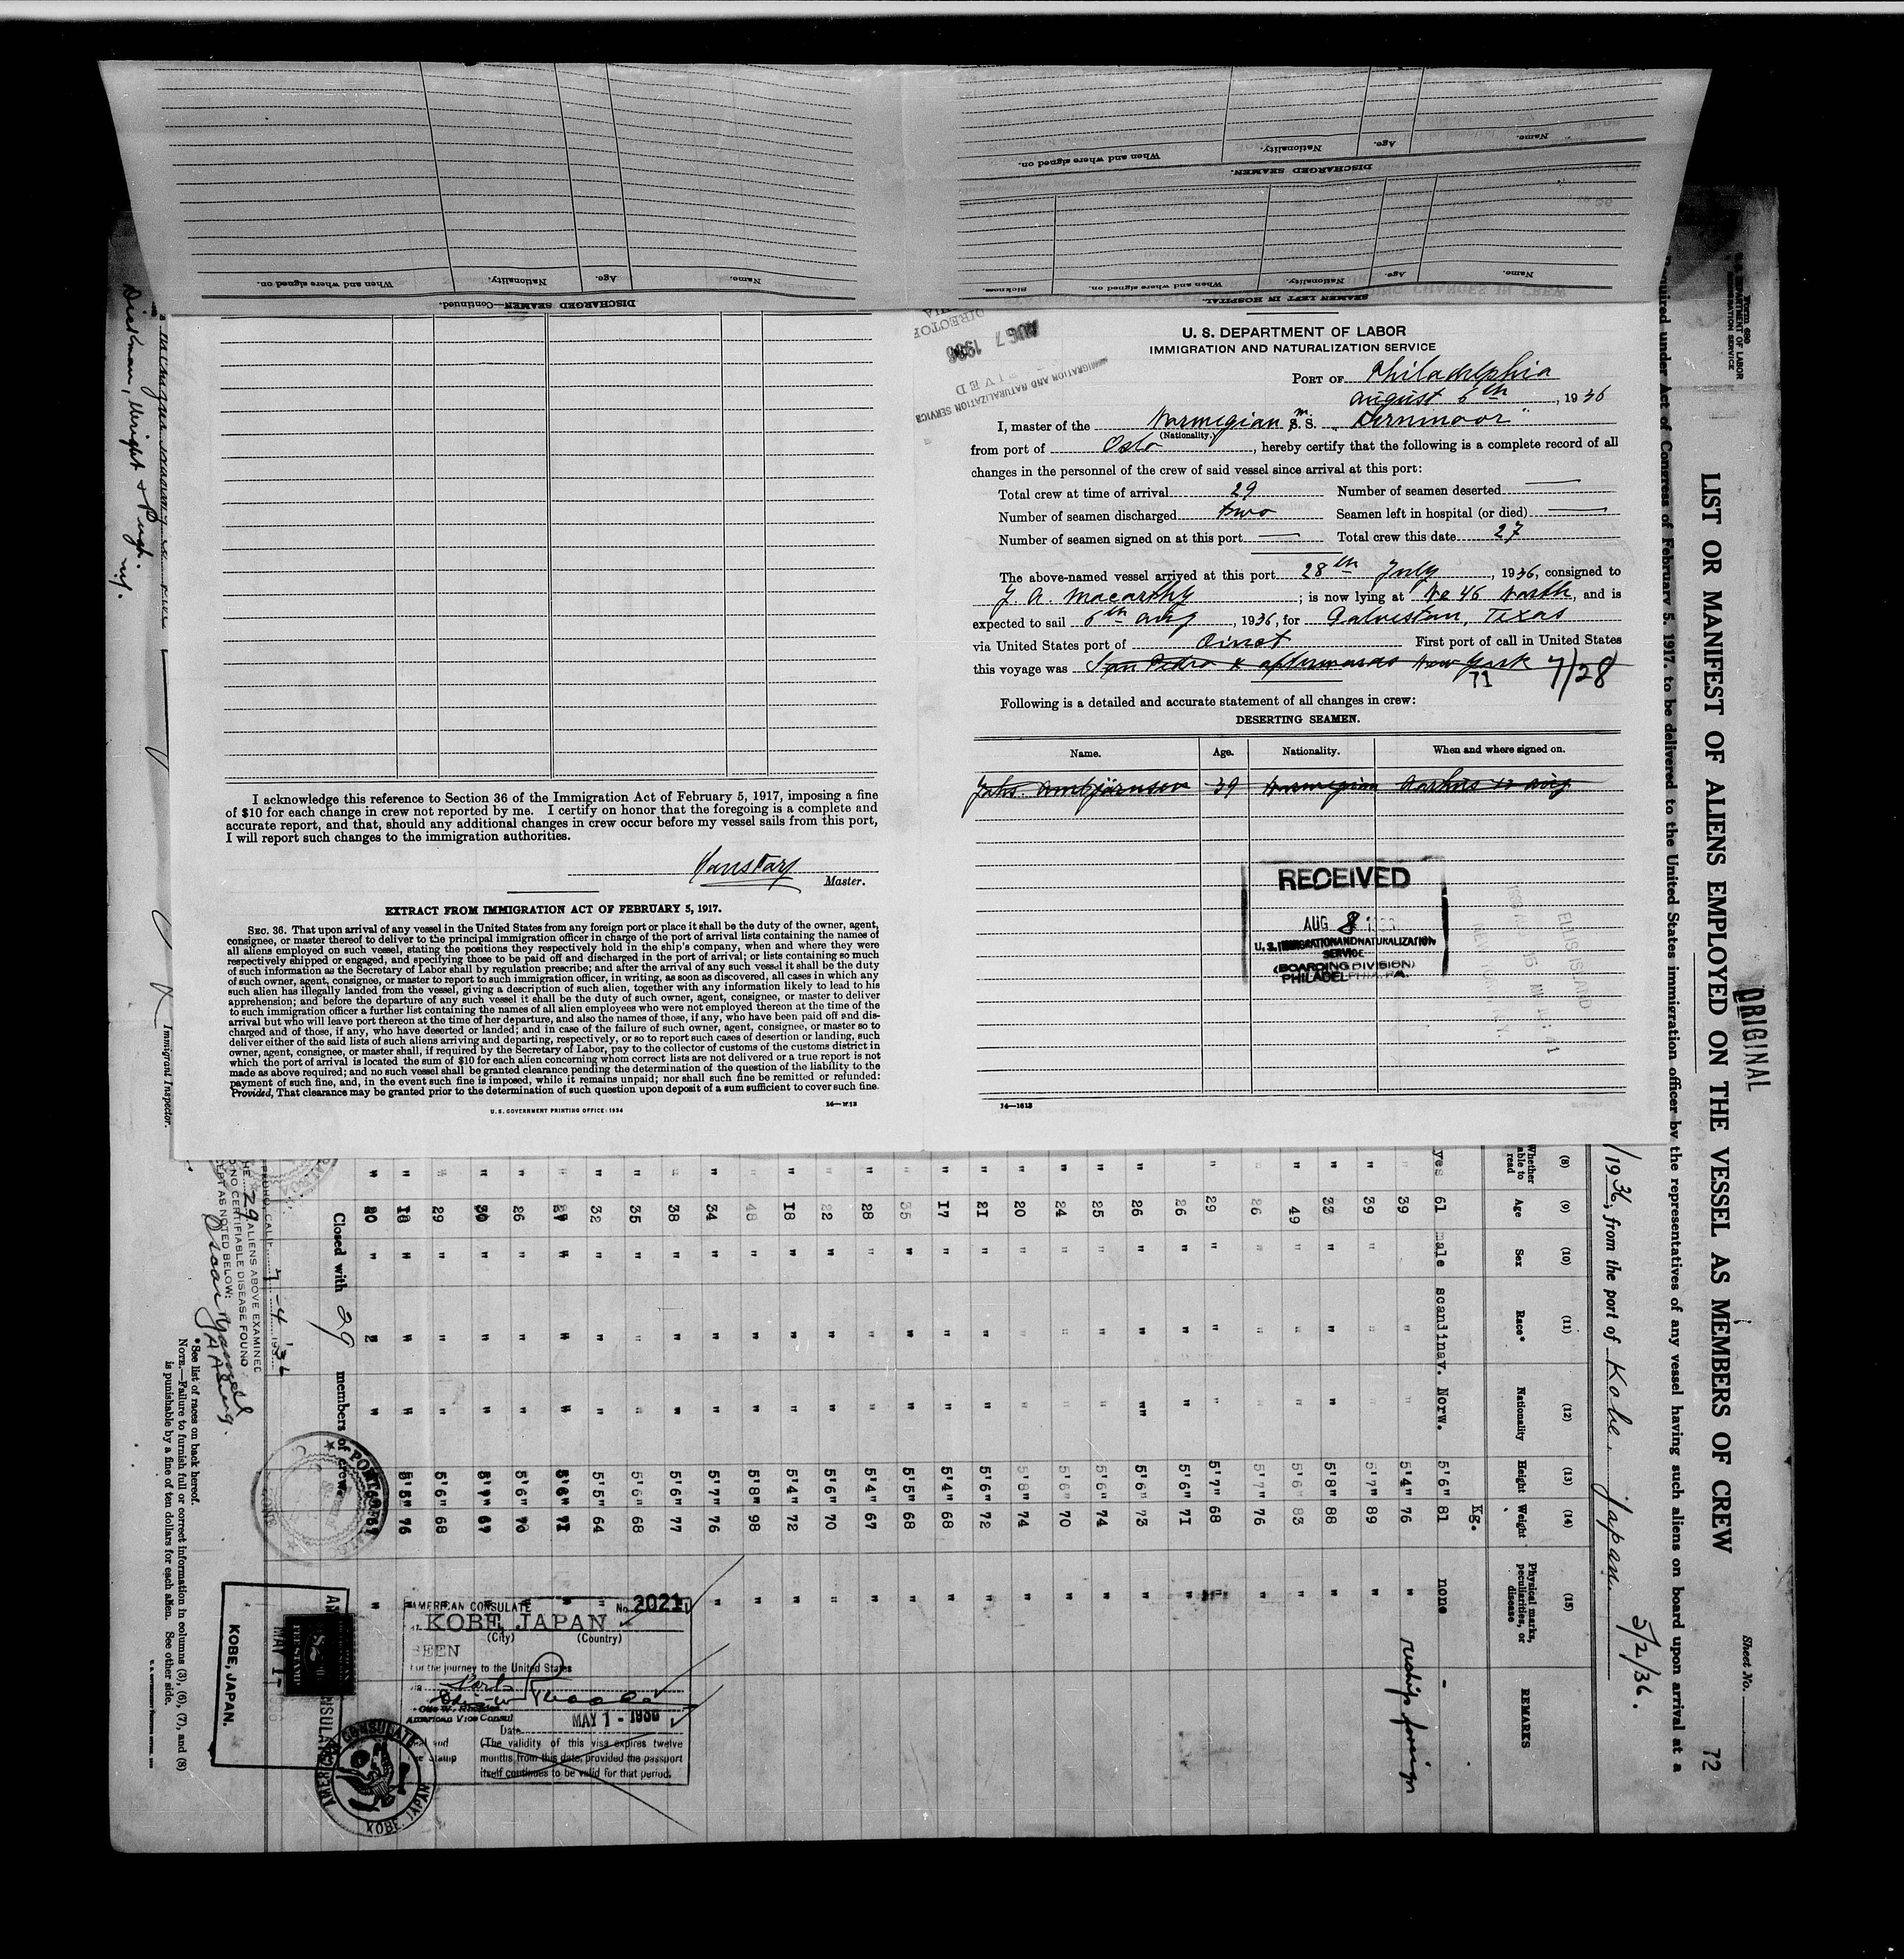 DISCHARGED SEAMEN.
Name.
Age.
Nationality.
When and where signed on.
SEAMEN LEFT IN HOSPITAL.
Name.
Age.
Nationality.
When and where signed on.
Sickness.
DISCHARGED SEAMEN—Continued.
Name.
Age.
Nationality.
When and where signed on.
I acknowledge this reference to Section 36 of the Immigration Act of February 5, 1917, imposing a fine
of $10 for each change in crew not reported by me. I certify on honor that the foregoing is a complete and
accurate report, and that, should any additional changes in crew occur before my vessel sails from this port,
I will report such changes to the immigration authorities.
Master.
EXTRACT FROM IMMIGRATION ACT OF FEBRUARY 5, 1917.
SEC. 36. That upon arrival of any vessel in the United States from any foreign port or place it shall be the duty of the owner, agent,
consignee, or master thereof to deliver to the principal immigration officer in charge of the port of arrival lists containing the names of
all aliens employed on such vessel, stating the positions they respectively hold in the ship's company, when and where they were
respectively shipped or engaged, and specifying those to be paid off and discharged in the port of arrival; or lists containing so much
of such information as the Secretary of Labor shall by regulation prescribe; and after the arrival of any such vessel it shall be the duty
of such owner, agent, consignee, or master to report to such immigration officer, in writing, as soon as discovered, all cases in which any
such alien has illegally landed from the vessel, giving a description of such alien, together with any information likely to lead to his
apprehension; and before the departure of any such vessel it shall be the duty of such owner, agent, consignee, or master to deliver
to such immigration officer a further list containing the names of all alien employees who were not employed thereon at the time of the
arrival but who will leave port thereon at the time of her departure, and also the names of those, if any, who have been paid off and dis-
charged and of those, if any, who have deserted or landed; and in case of the failure of such owner, agent, consignee, or master so to
deliver either of the said lists of such aliens arriving and departing, respectively, or so to report such cases of desertion or landing, such
owner, agent, consignee, or master shall, if required by the Secretary of Labor, pay to the collector of customs of the customs district in
which the port of arrival is located the sum of $10 for each alien concerning whom correct lists are not delivered or a true report is not
made as above required; and no such vessel shall be granted clearance pending the determination of the question of the liability to the
payment of such fine, and, in the event such fine is imposed, while it remains unpaid; nor shall such fine be remitted or refunded:
Provided, That clearance may be granted prior to the determination of such question upon deposit of a sum sufficient to cover such fine.
U. S. GOVERNMENT PRINTING OFFICE: 1934
U. S. DEPARTMENT OF LABOR
IMMIGRATION AND NATURALIZATION SERVICE
PORT OF Philadelphia
august 6th, 1936
I, master of the Norwegian M. S. "Fernmoor"
(Nationality.)
from port of Oslo, hereby certify that the following is a complete record of all
changes in the personnel of the crew of said vessel since arrival at this port:
Total crew at time of arrival 29 Number of seamen deserted —
Number of seamen discharged two Seamen left in hospital (or died) —
Number of seamen signed on at this port — Total crew this date 27
The above-named vessel arrived at this port 28th July, 1936, consigned to
J. A. Macarthy; is now lying at No 46 North, and is
expected to sail 6th aug, 1936, for Galveston, Texas
via United States port of Direct First port of call in United States
this voyage was San Pedro & afterwards New York 7/28
71
Following is a detailed and accurate statement of all changes in crew:
DESERTING SEAMEN.
Name. Age. Nationality. When and where signed on.
39 Norwegian
RECEIVED
AUG 8
U. S. IMMIGRATION AND NATURALIZATION
SERVICE
(BOARDING DIVISION)
PHILADELPHIA, PA.
ELLIS ISLAND
14—1613
ORIGINAL
Form 680
U. S. DEPARTMENT OF LABOR
IMMIGRATION SERVICE
Sheet No.
72
LIST OR MANIFEST OF ALIENS EMPLOYED ON THE VESSEL AS MEMBERS OF CREW
Required under Act of Congress of February 5, 1917, to be delivered to the United States immigration officer by the representatives of any vessel having such aliens on board upon arrival at a
1936, from the port of Kobe. Japan 5/2/36.
(8) (9) (10) (11) (12) (13) (14) (15)
Whether able to read Age Sex Race* Nationality Height Weight Physical marks, peculiarities, or disease REMARKS
Kg.
yes 61 male scandinav. Norw. 5'6" 81 none -
" 39 " " " 5'4" 76 " reship foreign
" 39 " " " 5'7" 89 "
" 33 " " " 5'8" 88 "
" 49 " " " 5'6" 83 "
" 26 " " " 5'7" 76 "
" 29 " " " 5'7" 68 "
" 26 " " " 5'6" 71 "
" 26 " " " 5'6" 73 "
" 25 " " " 5'6" 74 "
" 24 " " " 5'6" 70 "
" 20 " " " 5'8" 74 "
" 21 " " " 5'6" 72 "
" 17 " " " 5'4" 68 "
" 35 " " " 5'5" 68 "
" 28 " " " 5'4" 67 "
" 22 " " " 5'6" 70 "
" 18 " " " 5'4" 72 "
" 48 " " " 5'8" 98 "
" 34 " " " 5'7" 76 "
" 38 " " " 5'6" 77
" 35 " " " 5'6" 68
" 32 " " " 5'5" 64 "
" " " " 71 "
" 26 " " " 5'6" 70
" 30 " " " 67
" 29 " " " 5'6" 68
" 18 " " " 5'5" 76
" 20 " " " "
Closed with 29 members of crew.
AMERICAN CONSULATE No. 2021
KOBE, JAPAN
(City) (Country)
SEEN
For the journey to the United States
American Vice Consul
Date MAY 1 - 1936
(The validity of this visa expires twelve
months from this date, provided the passport
itself continues to be valid for that period.
AMERICAN CONSULATE
KOBE, JAPAN
FEE STAMP
KOBE, JAPAN.
7-4 1936
29 ALIENS ABOVE EXAMINED
NO CERTIFIABLE DISEASE FOUND
EXCEPT AS NOTED BELOW:
*See list of races on back hereof.
NOTE.—Failure to furnish full or correct information in columns (3), (6), (7), and (8)
is punishable by a fine of ten dollars for each alien. See other side.
Immigrant Inspector.
Dickman, Wright & Pugh.
N.Y.